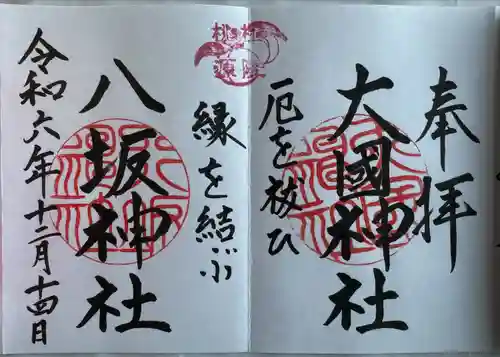 奉拝
大國神社
厄を祓ひ
縁を結ぶ
八坂神社
令和六年十二月十四日
桃源